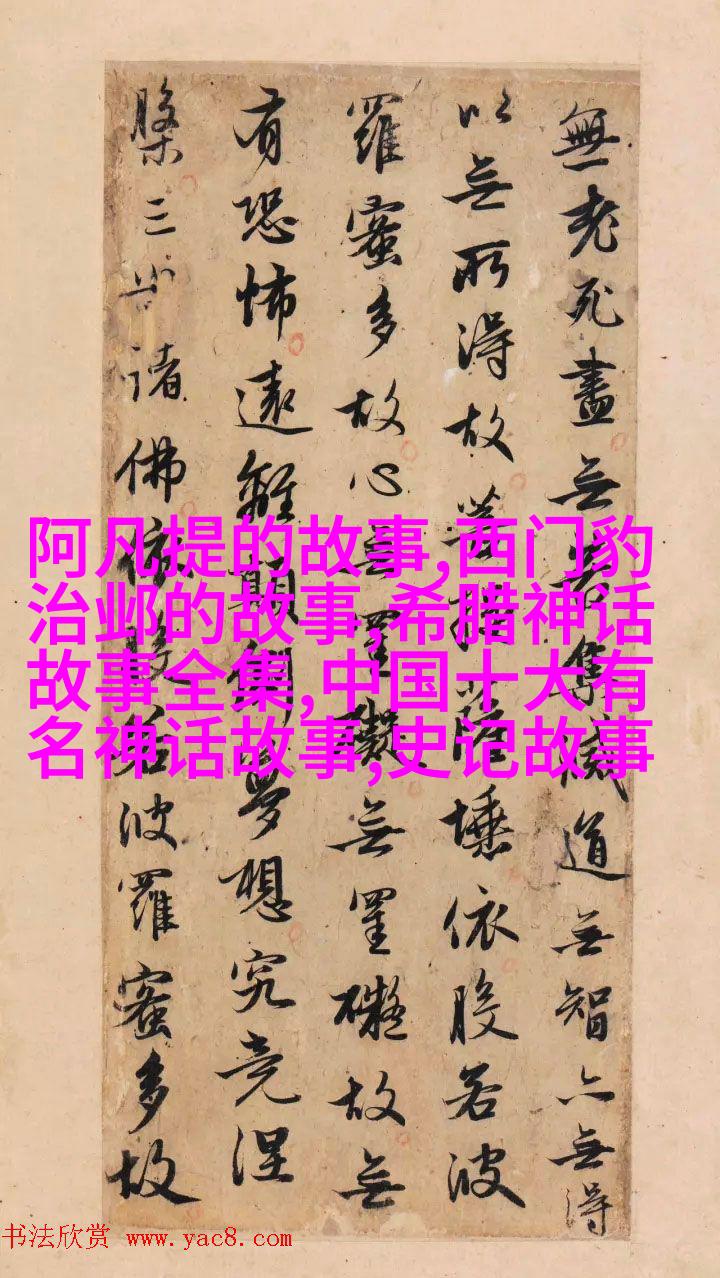 無老死盡无苦集滅道无智亦无得
以无所得故菩提薩埵依般若波
羅蜜多故心无罣礙无罣礙故无
有恐怖遠離顛倒夢想究竟涅
槃三世諸佛依般若波羅蜜多故
阿凡提的故事,西门豹
治邺的故事,希腊神话
故事全集,中国十大有
名神话故事,史记故事
书法欣赏 www.yac8.com